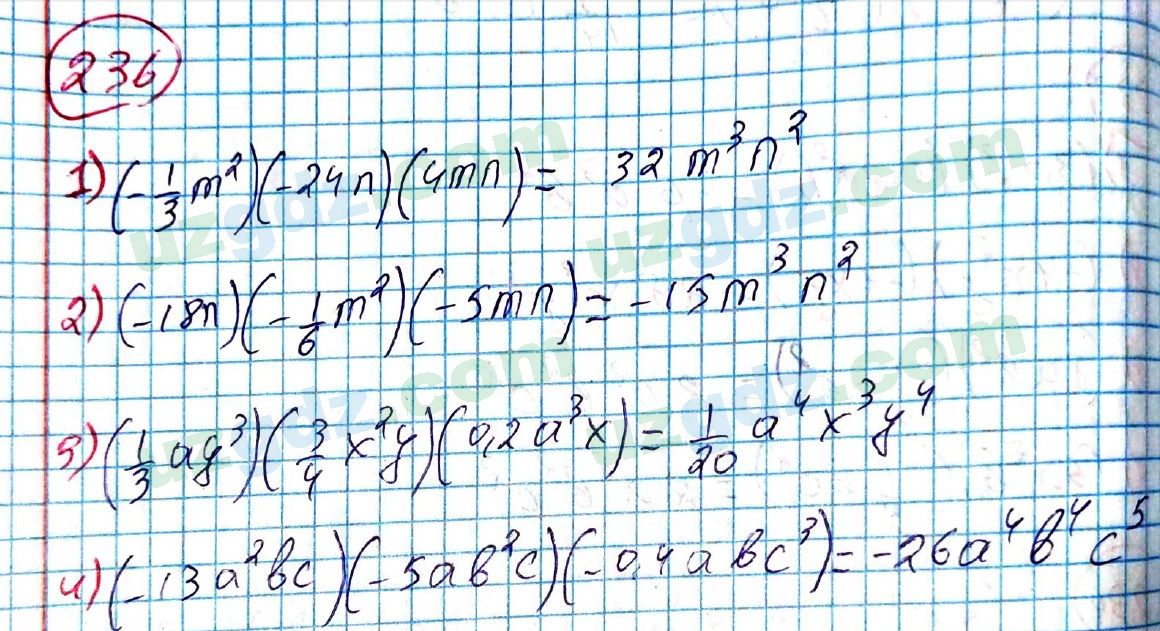 236
1) (-1/3 m²)(-24n)(4mn) = 32 m³n²
2) (-18n)(-1/6 m²)(-5mn) = -15m³n²
3) (1/3 ay³)(3/4 x²y)(0,2a³x) = 1/20 a⁴x³y⁴
4) (-13a²bc)(-5ab²c)(-0,4abc³) = -26a⁴b⁴c⁵
uzgdz.com
uzgdz.com
uzgdz.com
uzgdz.com